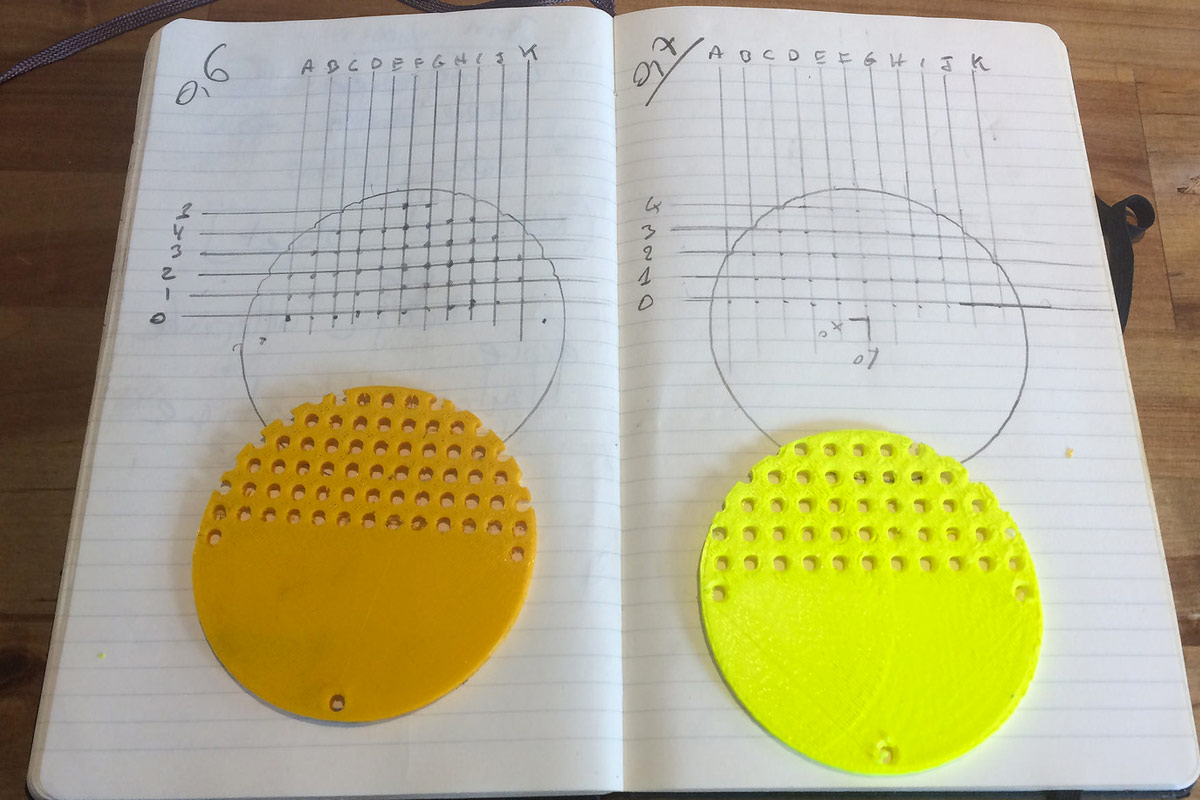 0,6
A B C D E F G H I J K
5
4
3
2
1
0
0,7
A B C D E F G H I J K
4
3
2
1
0
0x
0y